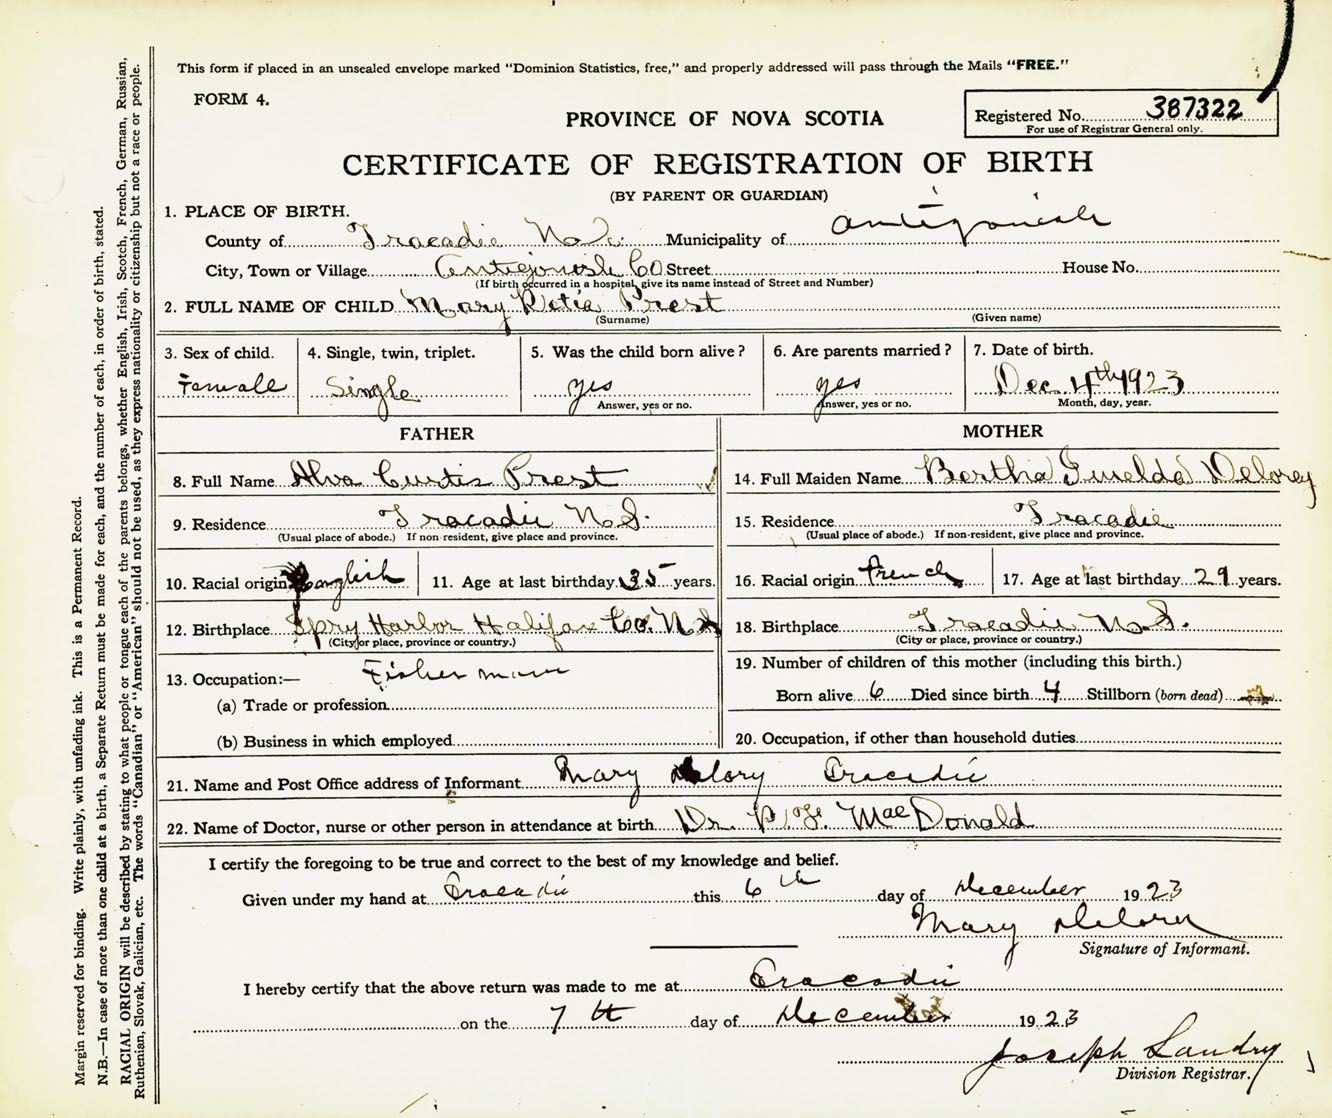 This form if placed in an unsealed envelope marked "Dominion Statistics, free," and properly addressed will pass through the Mails "FREE."
FORM 4.
PROVINCE OF NOVA SCOTIA
Registered No. 387322
For use of Registrar General only.
CERTIFICATE OF REGISTRATION OF BIRTH
(BY PARENT OR GUARDIAN)
1. PLACE OF BIRTH.
County of Tracadie N.S. Municipality of Antigonish
City, Town or Village Antigonish Co Street House No.
(If birth occurred in a hospital, give its name instead of Street and Number)
2. FULL NAME OF CHILD Mary Prest
(Surname) (Given name)
3. Sex of child. Female
4. Single, twin, triplet. Single
5. Was the child born alive? yes
Answer, yes or no.
6. Are parents married? yes
Answer, yes or no.
7. Date of birth. Dec 4th 1923
Month, day, year.
FATHER
8. Full Name Alva Curtis Prest
9. Residence Tracadie N.S.
(Usual place of abode.) If non-resident, give place and province.
10. Racial origin English 11. Age at last birthday 35 years.
12. Birthplace Spry Harbor Halifax Co. N.S
(City or place, province or country.)
13. Occupation:— Fisherman
(a) Trade or profession
(b) Business in which employed
MOTHER
14. Full Maiden Name Bertha Imelda Delorey
15. Residence Tracadie
(Usual place of abode.) If non-resident, give place and province.
16. Racial origin French 17. Age at last birthday 29 years.
18. Birthplace Tracadie N.S.
(City or place, province or country.)
19. Number of children of this mother (including this birth.)
Born alive 6 Died since birth 4 Stillborn (born dead)
20. Occupation, if other than household duties
21. Name and Post Office address of Informant Mary Delory Tracadie
22. Name of Doctor, nurse or other person in attendance at birth Dr. P. F. MacDonald
I certify the foregoing to be true and correct to the best of my knowledge and belief.
Given under my hand at Tracadie this 6th day of December 1923
Mary Delorey
Signature of Informant.
I hereby certify that the above return was made to me at Tracadie
on the 7th day of December 1923
Joseph Landry
Division Registrar.
Margin reserved for binding. Write plainly, with unfading ink. This is a Permanent Record.
N.B.—In case of more than one child at a birth, a Separate Return must be made for each, and the number of each, in order of birth, stated.
RACIAL ORIGIN will be described by stating to what people or tongue each of the parents belongs, whether English, Irish, Scotch, French, German, Russian,
Ruthenian, Slovak, Galician, etc. The words "Canadian" or "American" should not be used, as they express nationality or citizenship but not a race or people.